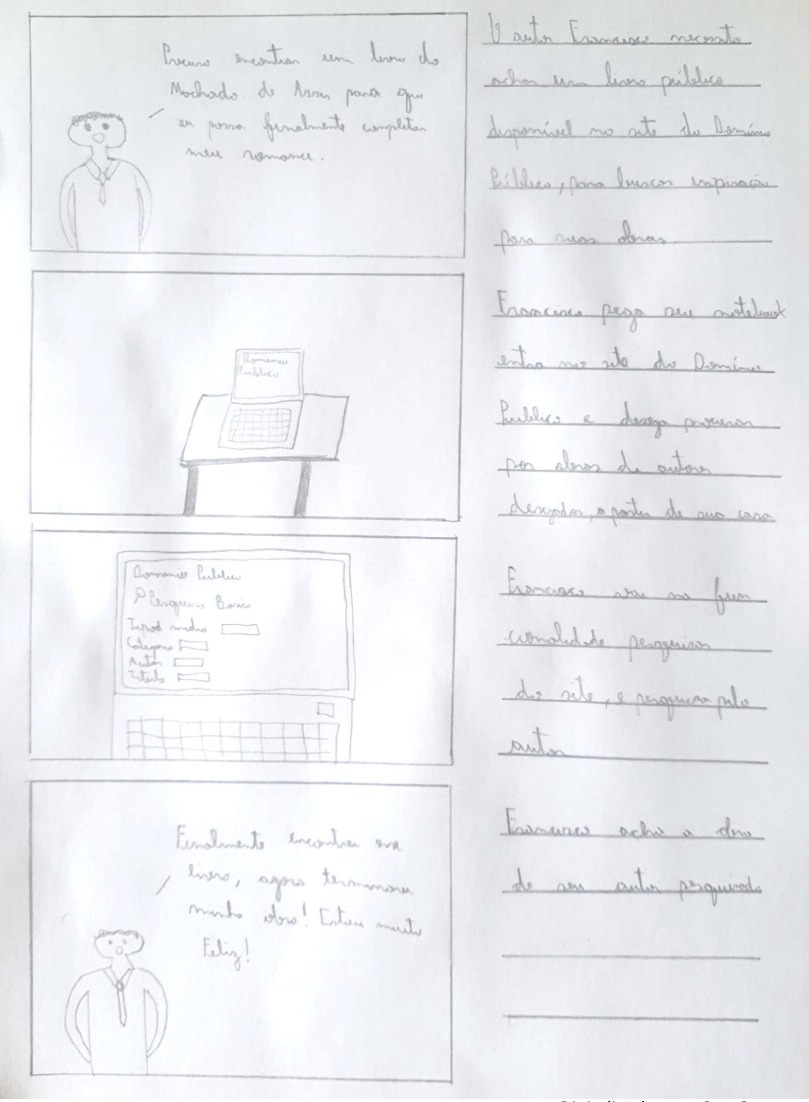 Preciso encontrar um livro do
Machado de Assis para que
eu possa finalmente completar
meu romance.
O autor Francisco necessita
achar um livro público
disponível no site do Domínio
Público, para buscar inspiração
para suas obras.
Domínio
Público
Francisco pega seu notebook
entra no site do Domínio
Público e deseja procurar
por obras de autores
desejados, a partir de sua casa
Domínio Público
Pesquisa Básica
Tipo de mídia
Categoria
Autor
Título
Francisco vai na fun
cionalidade pesquisar
do site, e pesquisa pelo
autor
Finalmente encontrei esse
livro, agora terminarei
minha obra! Estou muito
Feliz!
Francisco acha a obra
de seu autor pesquisado